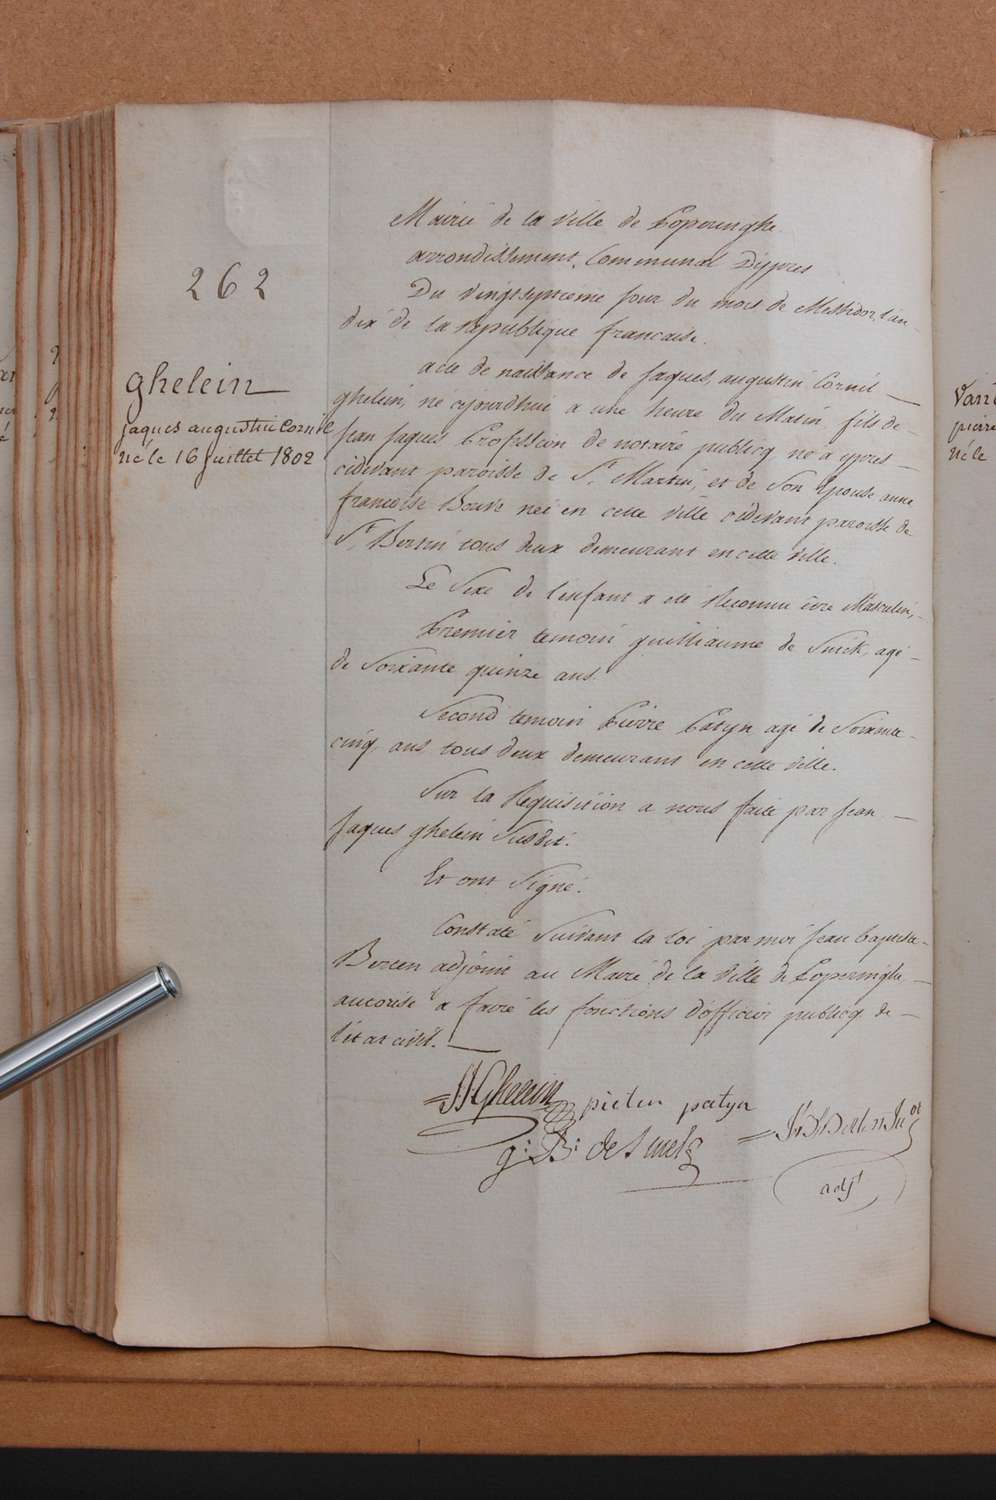 262
ghelein
jaques augustin Cornil
né le 16 juillet 1802
Mairie de la Ville de Poperinghe
arrondissement Communal D'ypres
Du Vingtseptieme jour du mois de Messidor l'an
dix de la republique francaise.
acte de naissance de jaques, augustin Cornil
ghelein, né cejourdhui a une heure du Matin fils de
jean jaques Profession de notaire publicq né a ypres
cidevant paroisse de St. Martin, et de Son Epouse anne
francoise Beuve née en cette Ville cidevant paroisse de
St. Bertin tous deux demeurant en cette Ville.
Le Sexe de l'enfant a ete Reconnu être Masculin,
Premier temoin guilliaume de Smet, agé
de Soixante quinze ans
Second temoin Pierre Patyn agé de Soixante
cinq ans tous deux demeurant en cette Ville.
Sur la Requisition a nous faite par jean
jaques ghelein Susdit.
Et ont Signé.
Constaté Suivant la loi par moi jean baptiste
Berten adjoint au Maire de la Ville de Poperinghe
autorisé a faire les fonctions d'officier publicq de
l'état civil.
JJ Ghelein pieter patyn
g: B: de Smet J: B Berten
adjt
Van
pierre
né le